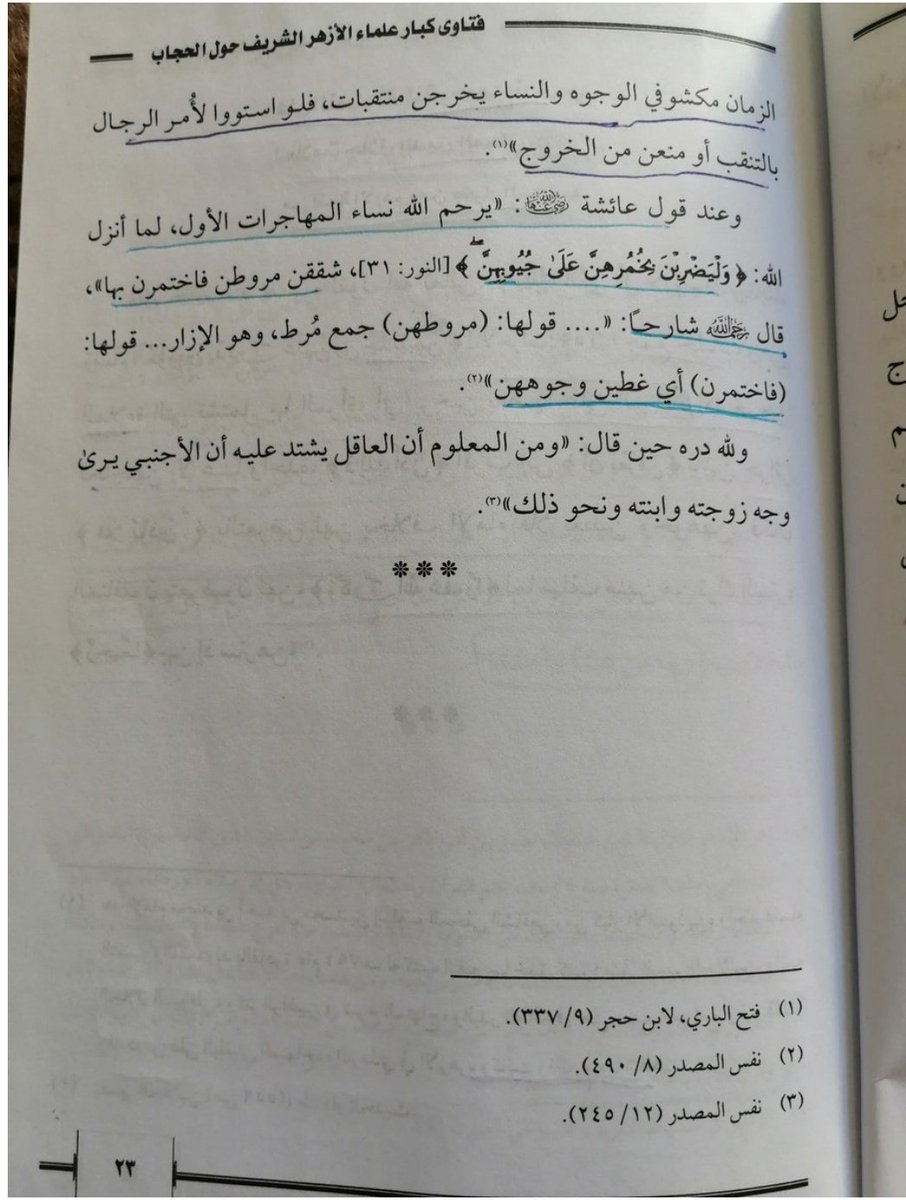 فتاوى كبار علماء الأزهر الشريف حول الحجاب
الزمان مكشوفي الوجوه والنساء يخرجن منتقبات، فلو استووا لأُمر الرجال
بالتنقب أو منعن من الخروج»(١).
وعند قول عائشة رضي الله عنها: «يرحم الله نساء المهاجرات الأول، لما أنزل
الله: ﴿وَلْيَضْرِبْنَ بِخُمُرِهِنَّ عَلَىٰ جُيُوبِهِنَّ ۖ﴾ [النور: ٣١]، شققن مروطن فاختمرن بها»،
قال رحمه الله شارحًا: «.... قولها: (مروطهن) جمع مُرط، وهو الإزار... قولها:
(فاختمرن) أي غطين وجوههن»(٢).
ولله دره حين قال: «ومن المعلوم أن العاقل يشتد عليه أن الأجنبي يرىٰ
وجه زوجته وابنته ونحو ذلك»(٣).
***
(١) فتح الباري، لابن حجر (٩/ ٣٣٧).
(٢) نفس المصدر (٨/ ٤٩٠).
(٣) نفس المصدر (١٢/ ٢٤٥).
٢٣